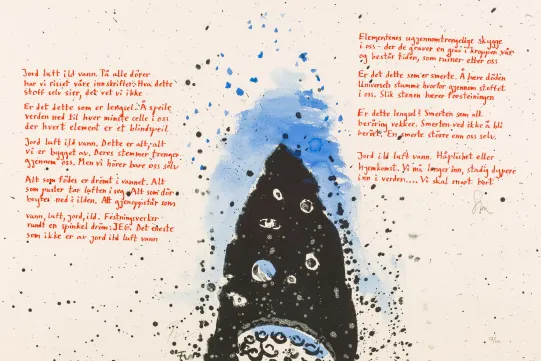 Jord luft ild vann. På alle dører
har vi risset våre innskrifter: Hva dette
stoff selv sier, det vet vi ikke
Er det dette som er lengsel: Å speile
verden ned til hver minste celle i oss
der hvert element er et blindspeil
Jord luft ild vann. Dette er alt, alt
vi er bygget av. Deres stemmer trenger
gjennom oss. Men vi hører bare oss selv
Alt som fødes er drømt i vannet. Alt
som puster tar luften i seg. Alt som dør
brytes ned i ilden. Alt gjenoppstår som
vann, luft, jord, ild. Festningsverker
rundt en spinkel drøm: JEG. Det eneste
som ikke er av jord ild luft vann
Elementenes uggjennomtrengelige skygge
i oss - der de graver en grav i kroppen vår
og består tiden, som ruiner etter oss
Er det dette som er smerte. Å høre døden
Universets stumme hvorfor gjennom stoffet
i oss. Slik stenen hører forsteiningen
Er dette lengsel? Smerten som all
berøring vekker. Smerten ved ikke å bli
berørt. En smerte større enn oss selv.
Jord ild luft vann. Håpløshet eller
hjemkomst. Vi må lenger inn, stadig dypere
inn i verden.... Vi skal snart bort